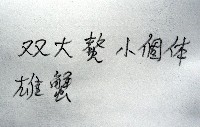 双大螯小個体
雄蟹